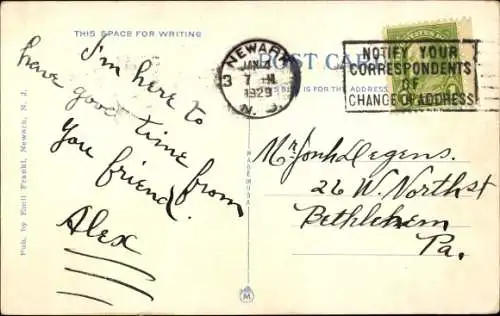 THIS SPACE FOR WRITING
I'm here to
have good time from
You friend.
Alex
Pub. by Emil Fraenkl, Newark, N. J.
NEWARK
JAN 4
3 7 - M
1929
N. J.
POST CARD
THIS SIDE IS FOR THE ADDRESS
NOTIFY YOUR
CORRESPONDENTS
OF
CHANGE OF ADDRESS
MADE IN U.S.A.
Mr. Jonh Degens.
26 W. North st
Bethlehem
Pa.
M